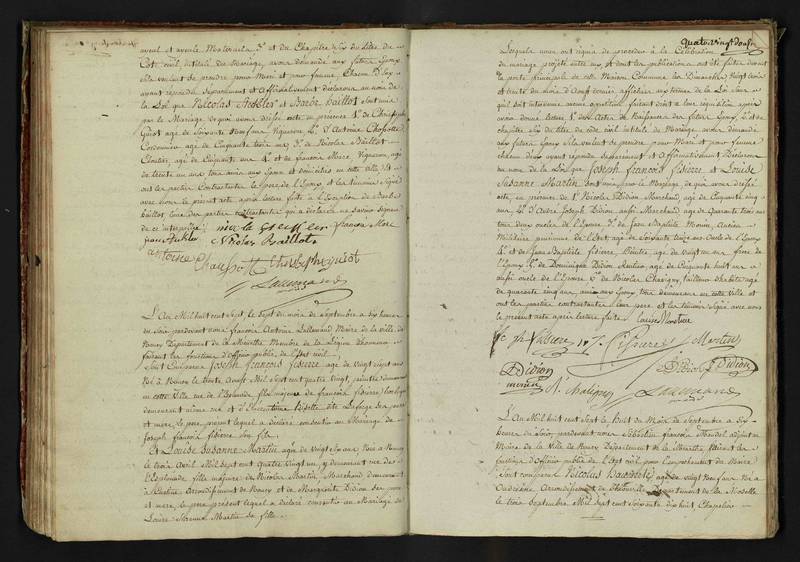 aveul et aveule Maternels et du Chapitre Six du Titre du
Code civil, intitulé du Mariage, avons demandé aux futurs Epoux
s'ils veulent se prendre pour Mari et pour femme, Chacun d'Eux
ayant répondu Séparément et Affirmativement déclarons au nom de
la Loi que Nicolas Ankler et Barbe Baillot sont unis
par le Mariage de quoi avons dressé acte en présence de Christophe
agé de Soixante neuf ans Vigneron, d'Antoine
Cordonnier agé de Cinquante trois ans, de Nicolas Baillot
Cloutier, agé de Cinquante six ans et de françois More, Vigneron, agé
de trente un ans tous amis aux Epoux et domiciliés en cette ville
ont les parties Contractantes le pere de l'Epoux, et les temoins Signé
avec nous le présent acte après lecture faite à l'Exception de Barbe
Baillot l'une des parties contractantes qui a déclaré ne savoir Signer
de ce interpellée.
françois More
Jean Ankler Nicolas Baillot
antoine
Christophe
Lallemand
L'An Mil huit cent Sept, le Sept du mois de Septembre a dix heures
du Soir pardevant nous françois Antoine Lallemand Maire de la ville de
Nancy Département de la Meurthe Membre de la Légion d'honneur
faisant les fonctions d'officier public de l'Etat civil,
Sont Comparus Joseph François fisierre agé de vingt Sept ans
Né à Nancy le trente Mil Sept cent quatre vingt, peintre demeurant
en cette Ville rue de l'Esplanade fils majeur de françois fisierre,
demeurant même rue et d' ses père
et mere, le pere présent lequel a déclaré consentir au Mariage de
Joseph françois fisierre Son fils.
Et Louise Susanne Martin agée de Vingt Six ans Née à Nancy
le trois Avril Mil Sept cent quatre Vingt un, y demeurant rue de
l'Esplanade, fille majeure de Nicolas Martin, Marchand demeurant
à Arrondissement de Nancy et de Marguerite Didion ses pere
et mere, le pere présent lequel a déclaré consentir au Mariage de
Louise Susanne Martin sa fille.
Quatre Vingt douze
Lesquels nous ont requis de procéder à la Célébration
du mariage projeté entre eux et dont les publications ont été faites devant
la porte principale de cette Maison Commune les Dimanches Vingt trois
et trente du mois d'Aout dernier, affichées aux termes de la Loi Sans
qu'il soit intervenu aucune opposition faisant droit à leur réquisition après
avoir donné lecture des Actes de Naissance des futurs Epoux, et du
chapitre Six du titre du code civil intitulé du Mariage, avons demandé
aux futurs Epoux s'ils veulent se prendre pour Mari et pour femme
chacun d'eux ayant répondu Séparément et Affirmativement Déclarons
au nom de la Loi que Joseph françois fisierre et Louise
Susanne Martin sont unis par le Mariage de quoi avons dressé
acte, en présence de Nicolas Didion Marchand, agé de Cinquante cinq
ans, d'André Joseph Didion aussi Marchand, agé de Quarante trois ans
tous deux oncles de l'Epouse, de Jean Baptiste Monin, Ancien
Militaire pensionné de l'Etat agé de Soixante treize ans oncle de l'Epoux
et de Jean Baptiste fisierre, Peintre, agé de vingt un ans frere de
l'Epoux, de Dominique Didion Rentier, agé de Cinquante huit ans
aussi oncle de l'Epouse, de Nicolas Chatigny, tailleur d'habits agé
de quarante cinq ans, ami aux Epoux tous demeurant en cette Ville et
ont les parties contractantes leur pere et les témoins Signé avec nous
le présent acte après lecture faite. Louise Martin
J. ph fisierre fisierre Martin
Didion
Didion
monin N. Chatigny Lallemand
L'An Mil huit cent Sept le Huit du Mois de Septembre a Six
heures du Soir, pardevant nous Sebastien françois Mandel adjoint au
Maire de la Ville de Nancy Département de la Meurthe faisant les
fonctions d'officier public de l'Etat civil pour l'empechement du Maire
Sont Comparus Nicolas agé de vingt Neuf ans Né a
Arrondissement de Thionville Département de la Moselle
le trois Septembre Mil Sept cent Soixante dix huit Chapelier